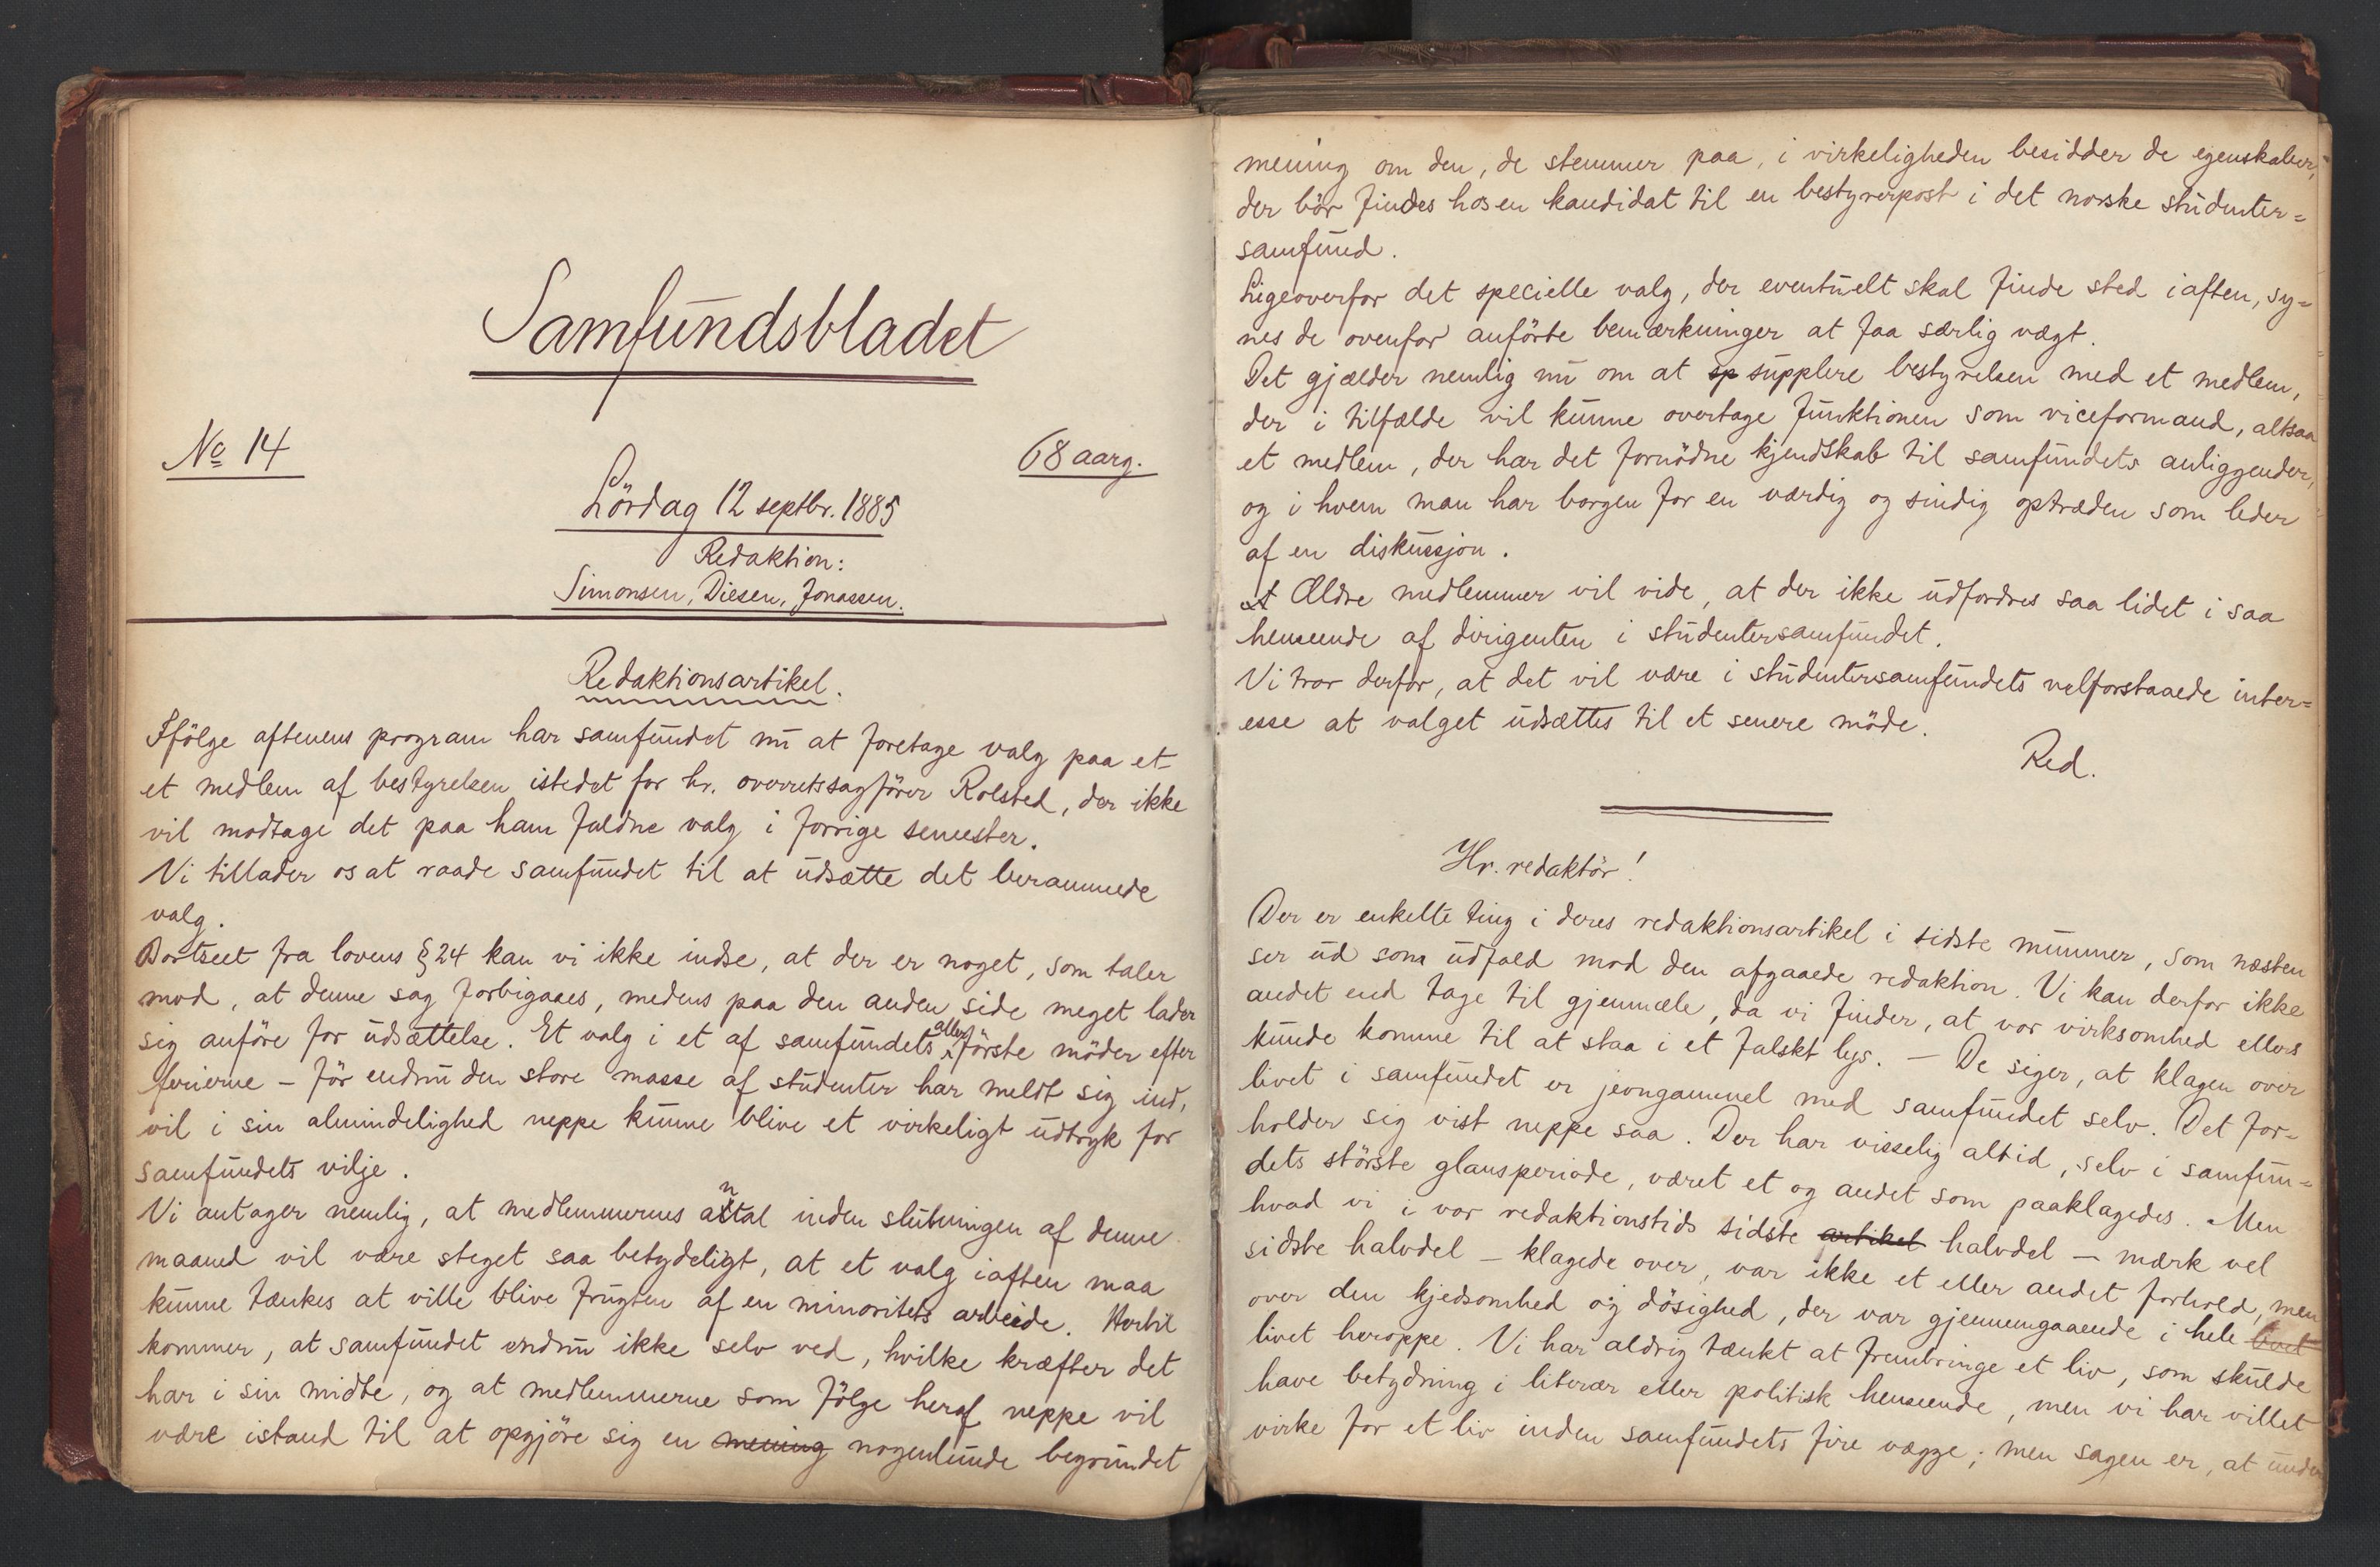 Samfundsbladet
No 14
68 aarg.
Lördag 12 septbr. 1885
Redaktion:
Simonsen, Diesen, Jonassen.
Redaktionsartikel.
Ifölge aftenens program har samfundet nu at foretage valg paa et
et medlem af bestyrelsen istedet for hr. overretssagförer Rolsted, der ikke
vil modtage det paa ham faldne valg i forrige semester.
Vi tillader os at raade samfundet til at udsætte det berammede
valg.
Bortseet fra lovens § 24 kan vi ikke indse, at der er noget, som taler
mod, at denne sag forbigaaes, medens paa den anden side meget lader
sig anföre for udsættelse. Et valg i et af samfundets aller förste möder efter
ferierne – för endnu den store masse af studenter har meldt sig ind,
vil i sin almindelighed neppe kunne blive et virkeligt udtryk for
samfundets vilje.
Vi antager nemlig, at medlemmernes antal inden slutningen af denne
maaned vil være steget saa betydeligt, at et valg iaften maa
kunne tænkes at ville blive frugten af en minoritets arbeide. Hertil
kommer, at samfundet endnu ikke selv ved, hvilke kræfter det
har i sin midte, og at medlemmerne som fölge heraf neppe vil
være istand til at opgjöre sig en mening nogenlunde begrundet
mening om den, de stemmer paa, i virkeligheden besidder de egenskaber,
der bör findes hos en kandidat til en bestyrerpost i det norske studenter=
samfund.
Ligeoverfor det specielle valg, der eventuelt skal finde sted iaften, sy=
nes de ovenfor anförte bemærkninger at faa særlig vægt.
Det gjælder nemlig nu om at sp supplere bestyrelsen med et medlem,
der i tilfælde vil kunne overtage funktionen som viceformand, altsaa
et medlem, der har det fornödne kjendskab til samfundets anliggender,
og i hvem man har borgen for en værdig og sindig optræden som leder
af en diskussjon.
Ældre medlemmer vil vide, at der ikke udfordres saa lidet i saa
henseende af dirigenten i studentersamfundet.
Vi tror derfor, at det vil være i studentersamfundets velforstaaede inter=
esse at valget udsættes til et senere möde.
Red.
Hr. redaktör!
Der er enkelte ting i deres redaktionsartikel i sidste nummer, som næsten
ser ud som udfald mod den afgaaede redaktion. Vi kan derfor ikke
andet end tage til gjenmæle, da vi finder, at vor virksomhed ellers
kunde komme til at staa i et falskt lys. – De siger, at klagen over
livet i samfundet er jevngammel med samfundet selv. Det for=
holder sig vist neppe saa. Der har visselig altid, selv i samfun=
dets störste glansperiode, været et og andet som paaklagedes. Men
hvad vi i vor redaktionstids sidste artikel halvdel – mærk vel
sidste halvdel – klagede over, var ikke et eller andet forhold, men
over den kjedsomhed og dösighed, der var gjennemgaaende i hele livet
livet heroppe. Vi har aldrig tænkt at frembringe et liv, som skulde
have betydning i literær eller politisk henseende, men vi har villet
virke for et liv inden samfundets fire vægge; men sagen er, at under